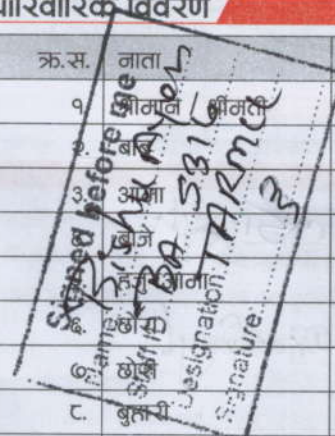 पारिवारिक विवरण
क्र.स. नाता
१. श्रीमान / श्रीमती
२. बाबु
३. आमा
बाजे
हजुरआमा
६. छोरा
७. छोरी
८. बुहारी
Signed before me
Name: Bishu
Staff BA 5316
Designation: TARMU
Signature: